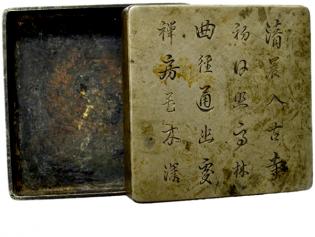 清晨入古寺
初日照高林
曲径通幽處
禅房花木深